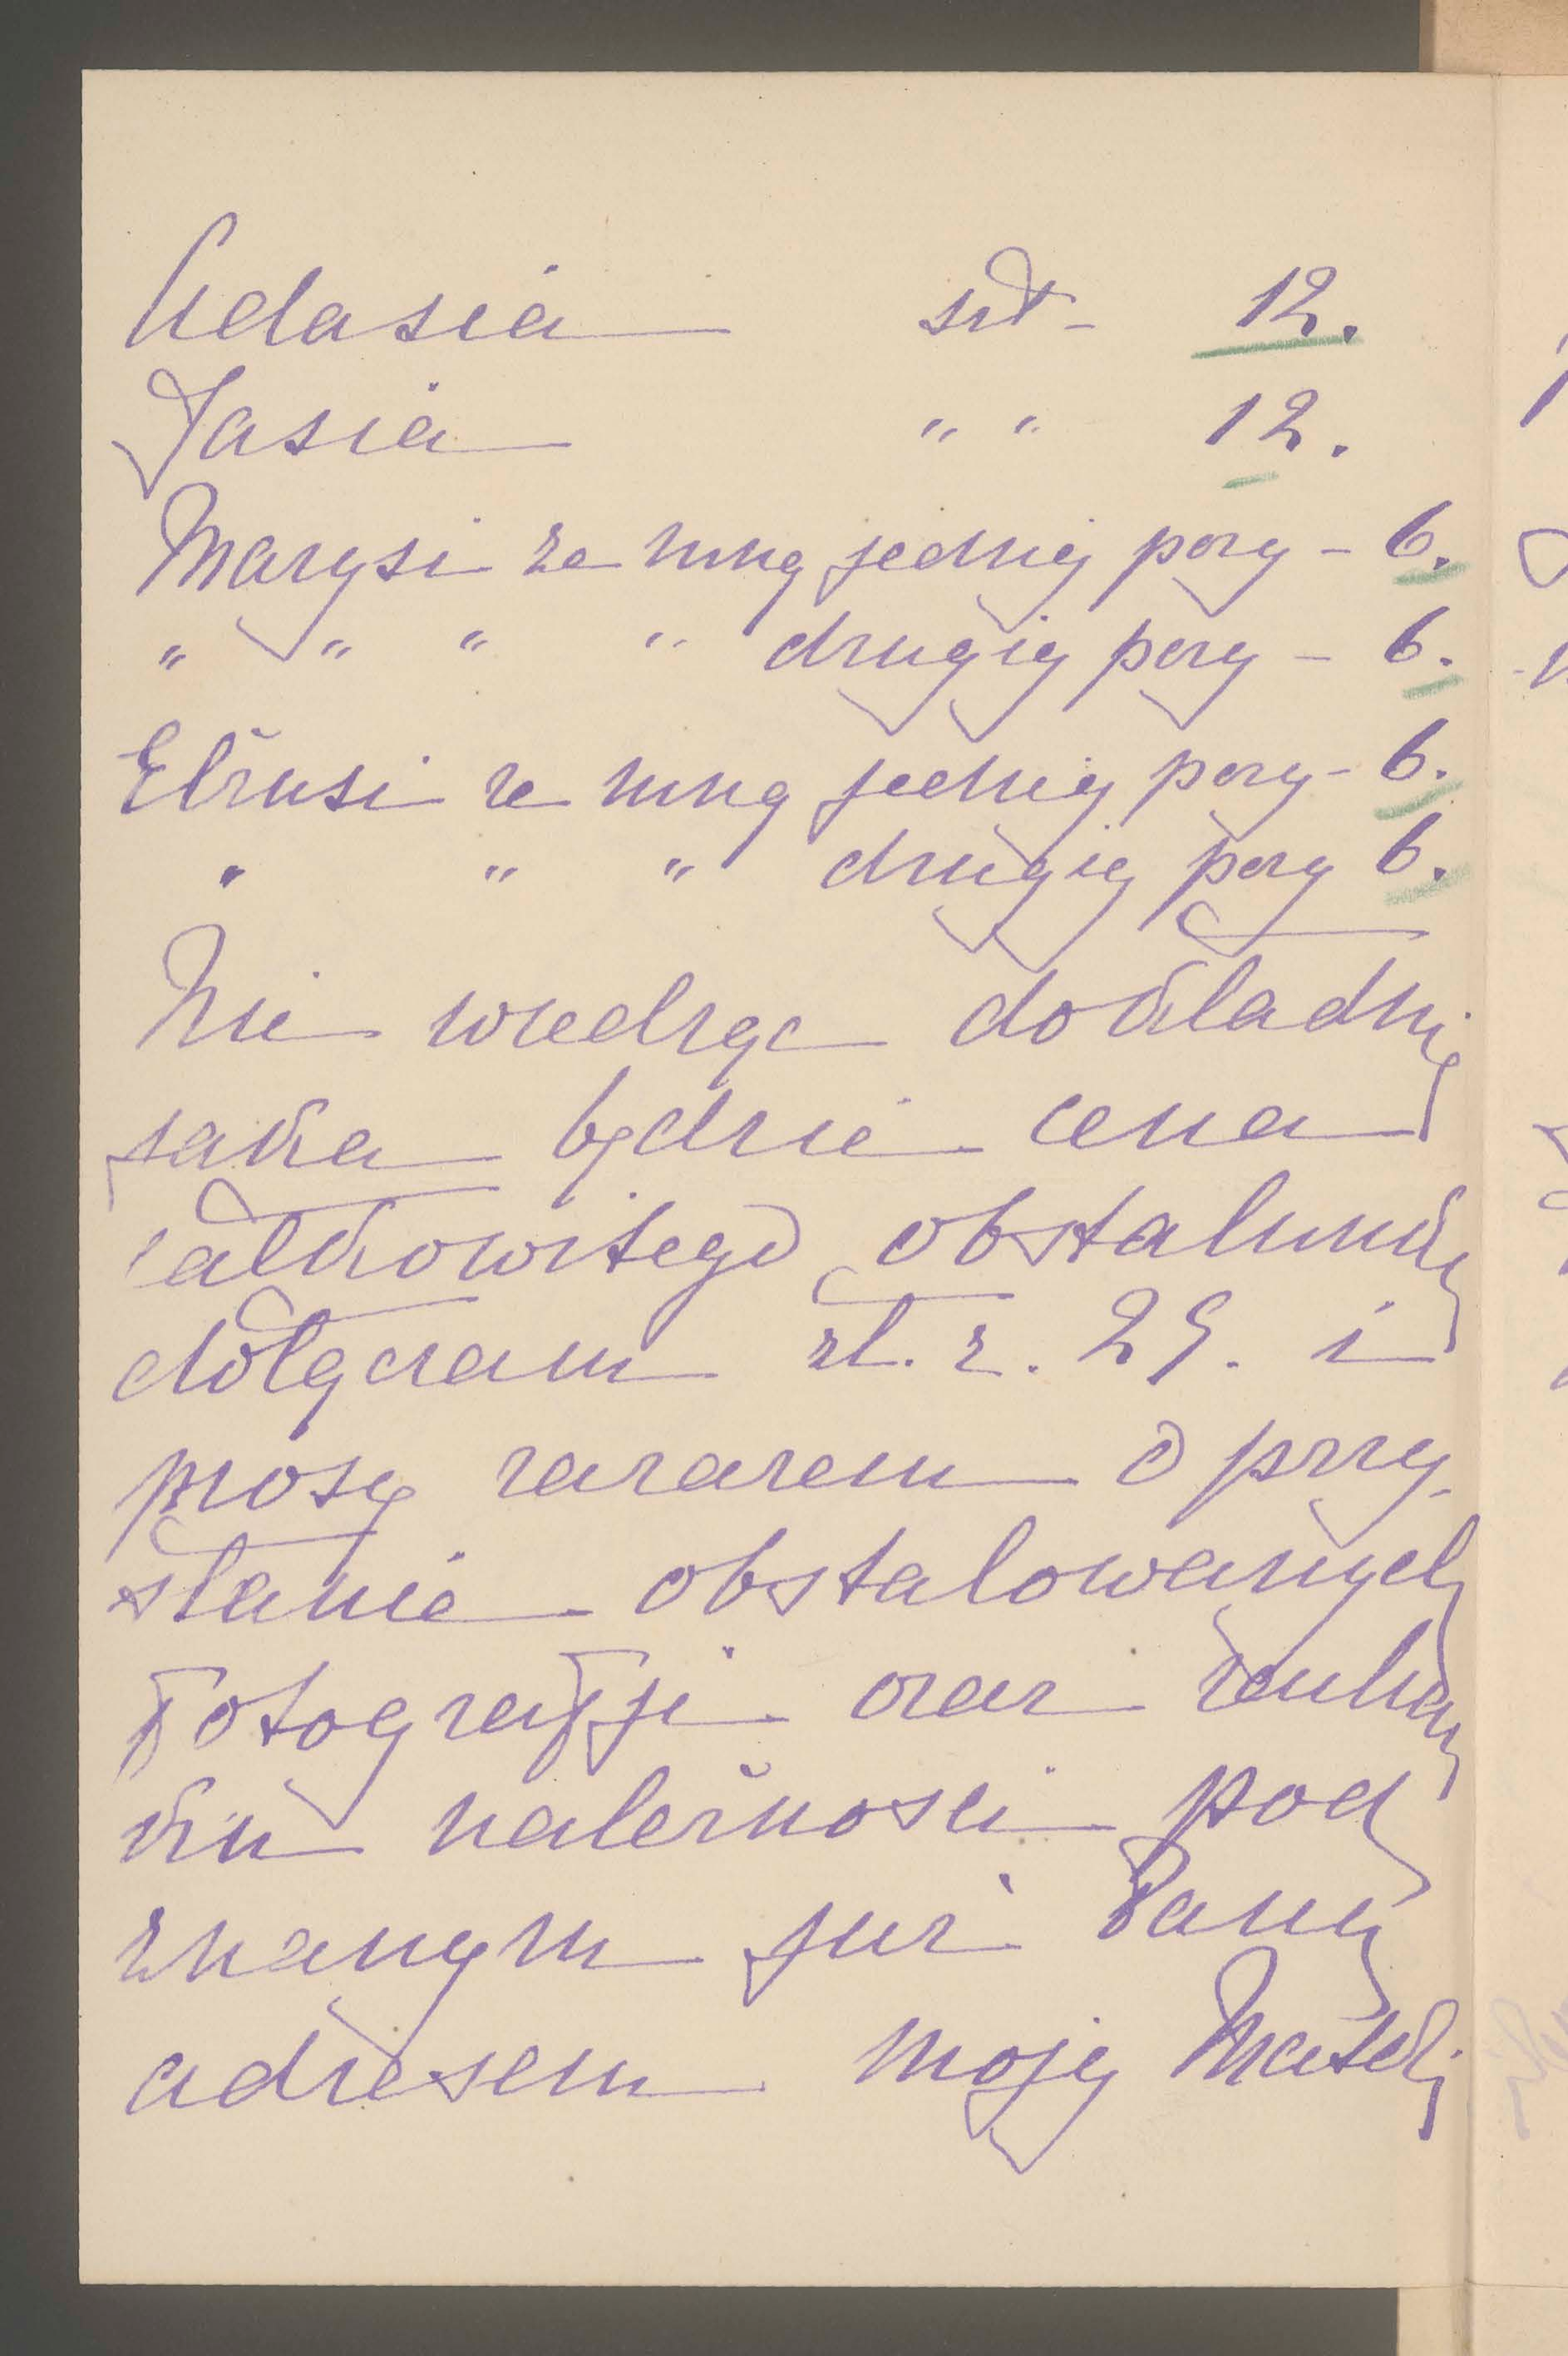 Adasia szt - 12.
Jasia " " 12.
Marysi ze mną jednej pozy - 6.
" " " " drugiej pozy - 6.
Elżusi ze mną jednej pozy - 6.
" " " drugiej pozy 6.
Nie wiedząc dokładnie
jaka będzie cena
całkowitego obstalunku
dołączam zł. r. 25. i
proszę zarazem o przy-
słanie obstalowanych
fotografji oraz rachun
ku należności pod
znanym już Panu
adresem mojej Matki